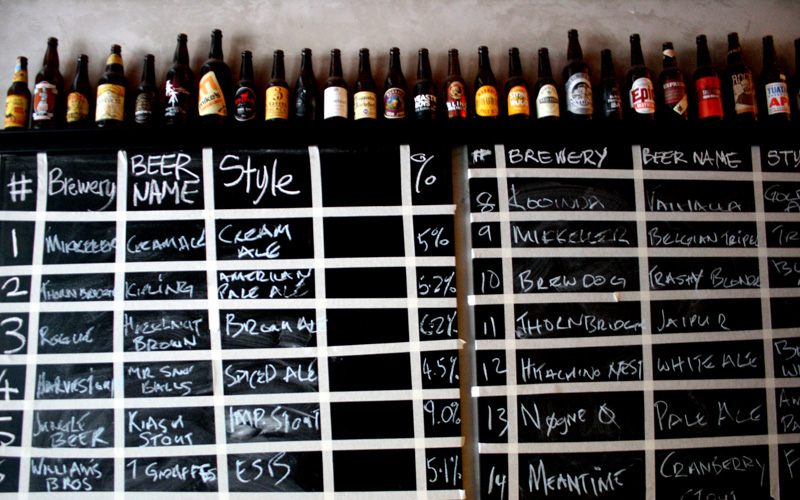 # Brewery BEER NAME Style %
1 MIKKELLER CREAM ALE CREAM ALE 5%
2 THORNBRIDGE KIPLING AMERICAN PALE ALE 5.2%
3 ROGUE HAZELNUT BROWN BROWN ALE 6.2%
4 HARVISTOUN SPICED ALE 4.5%
5 JUNGLE BEER STOUT IMP. STOUT 9.0%
WILLIAMS BROS 7 GIRAFFES ESB 5.1%
# BREWERY BEER NAME
8 KOOINDA VALHALLA
9 MIKKELLER BELGIAN TRIPEL
10 BREWDOG TRASHY BLONDE
11 THORNBRIDGE JAIPUR
12 HITACHINO NEST WHITE ALE
13 NØGNE Ø PALE ALE
14 MEANTIME CRANBERRY